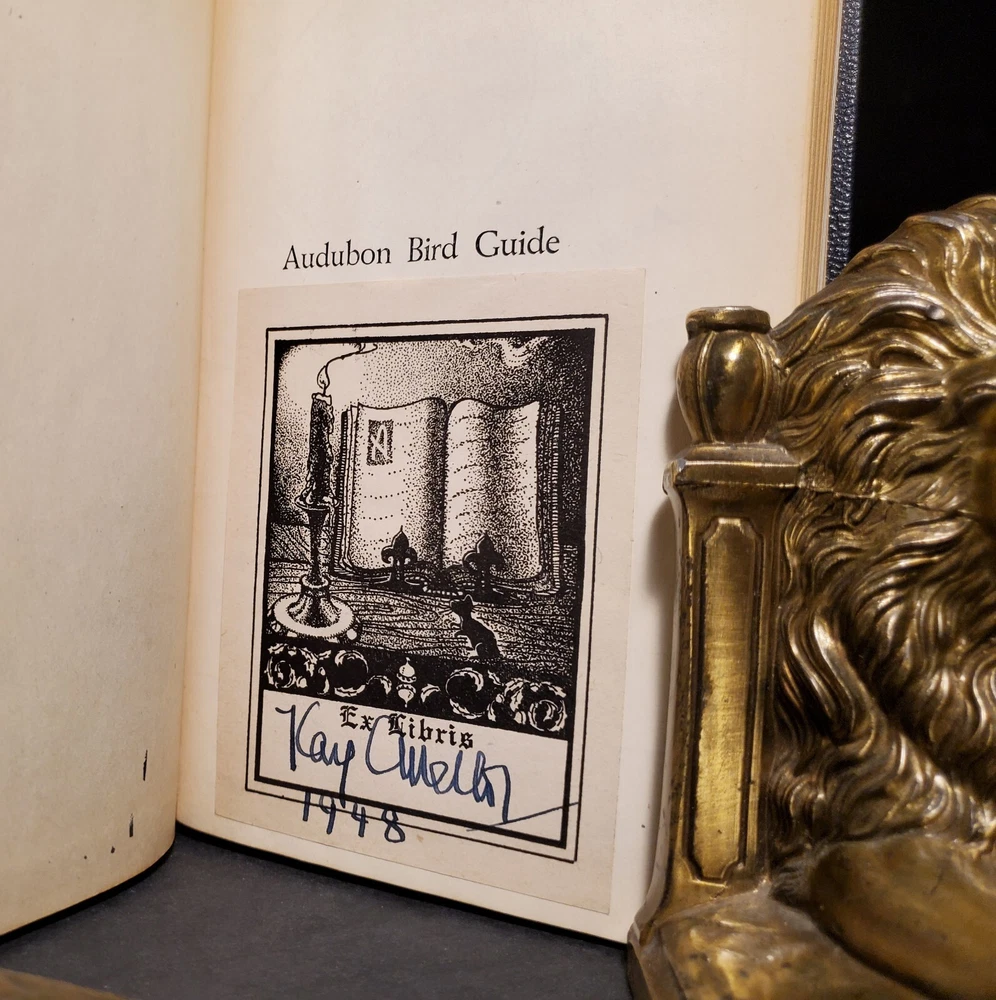 Audubon Bird Guide
A
Ex Libris
Kay
1948